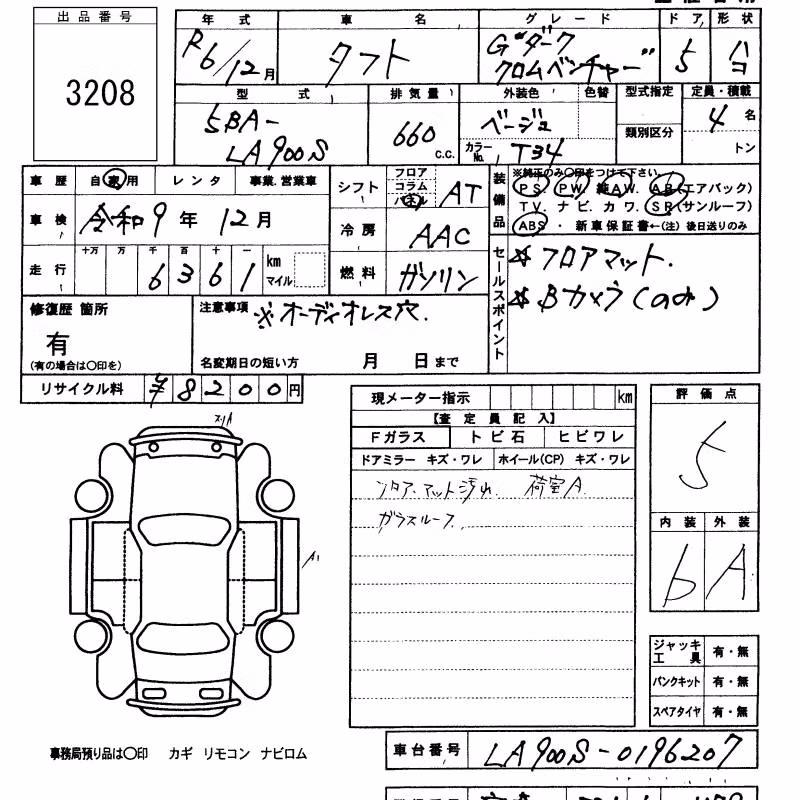 出品番号
3208
年式 車名 グレード ドア 形状
R6/12月 タフト G"ダーク
クロムベンチャー" 5 ハコ
型式 排気量 外装色 色替 型式指定 定員・積載
5BA-
LA900S 660 c.c. ベージュ 類別区分 4名
カラーNo. T34 トン
車歴 自家用 レンタ 事業.営業車
車検 令和9年12月
走行 十万 万 千 百 十 一
6 3 6 1 km
マイル
シフト フロア
コラム
パネル AT
冷房 AAC
燃料 ガソリン
装備品 ※純正のみ○印をつけて下さい。
PS PW 純AW. AB(エアバック)
TV. ナビ. カワ. SR(サンルーフ)
ABS . 新車保証書←(注)後日送りのみ
セールスポイント
☆フロアマット.
☆Bカメラ(のみ)
修復歴 箇所
有
(有の場合は○印を)
注意事項 ※オーディオレス穴.
名変期日の短い方 月 日まで
リサイクル料 ¥8200円
現メーター指示 km
【査定員記入】
Fガラス トビ石 ヒビワレ
ドアミラー キズ・ワレ ホイール(CP) キズ・ワレ
フロア.マット汚れ 荷室A
ガラスルーフ
評価点
5
内装 外装
b A
A1
ジャッキ
工具 有・無
パンクキット 有・無
スペアタイヤ 有・無
事務局預り品は○印 カギ リモコン ナビロム
車台番号 LA900S-0196207